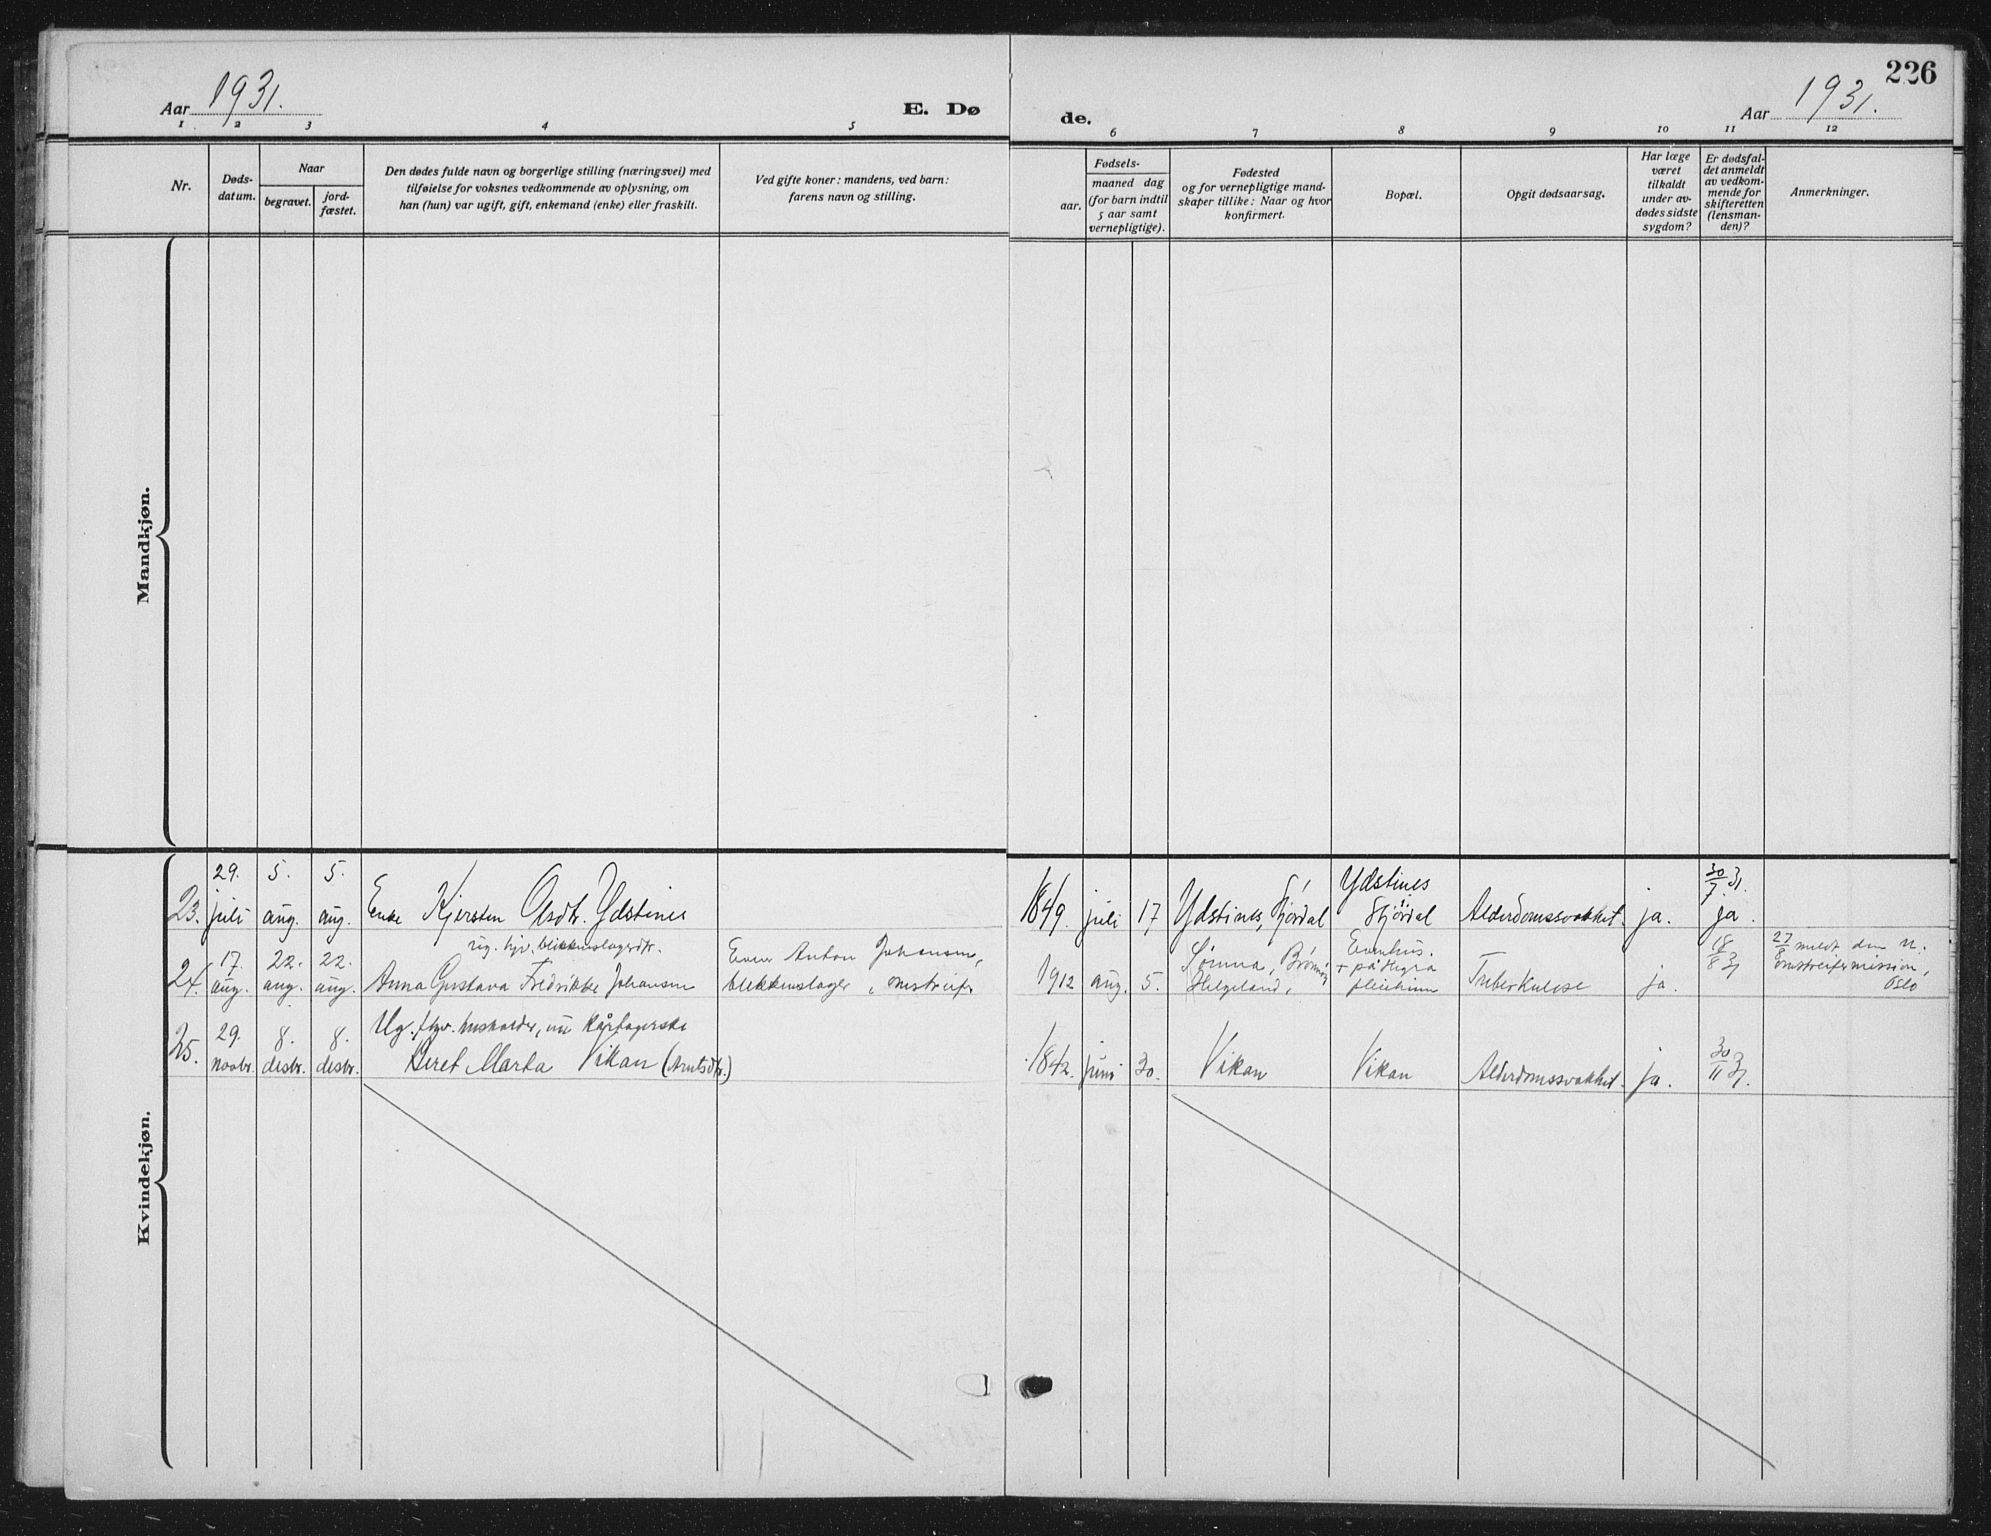 226
Aar 1931.
E. Dø
de.
Aar 1931.
1 2 3 4 5 6 7 8 9 10 11 12
Nr.
Døds-
datum.
Naar
begravet.
jord-
fæstet.
Den dødes fulde navn og borgerlige stilling (næringsvei) med
tilføielse for voksnes vedkommende av oplysning, om
han (hun) var ugift, gift, enkemand (enke) eller fraskilt.
Ved gifte koner: mandens, ved barn:
farens navn og stilling.
Fødsels-
aar.
maaned dag
(for barn indtil
5 aar samt
vernepligtige).
Fødested
og for vernepligtige mand-
skaper tillike: Naar og hvor
konfirmert.
Bopæl.
Opgit dødsaarsag.
Har læge
været
tilkaldt
under av-
dødes sidste
sygdom?
Er dødsfal-
det anmeldt
av vedkom-
mende for
skifteretten
(lensman-
den)?
Anmerkninger.
Mandkjøn.
Kvindekjøn.
23.
29.
juli
5.
aug.
5.
aug.
Enke Kjersten Olsdtr. Ydstines
1849. juli 17
Ydstines, Stjørdal
Ydstines
Stjørdal
Alderdomssvakhet.
ja.
30/7 31.
ja.
24.
17.
aug.
22.
aug.
22.
aug.
ug. hjv. blikkenslagerdtr.
Anna Gustava Fredrikke Johansen
Anton Johansen,
blikkenslager, omstreifer
1912 aug. 5.
Sømna, Brønnøy
Helgeland,
på Hegra
pleiehjem
Tuberkulose
ja.
18/8 31
27/8 meldt den n.
omstreifermission,
Oslo
25.
29.
novbr.
8.
desbr.
8.
desbr.
Ug. fhv. husholder, nu kårtagerske
Beret Marta Vikan (Arntsdtr.)
1842. juni 30.
Vikan
Vikan
Alderdomssvakhet.
ja.
30/11 31.